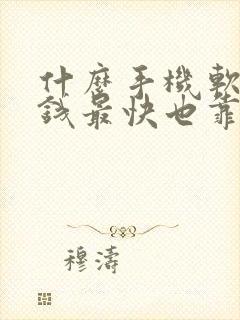 什麼手機軟
錢最快也靠
穆濤